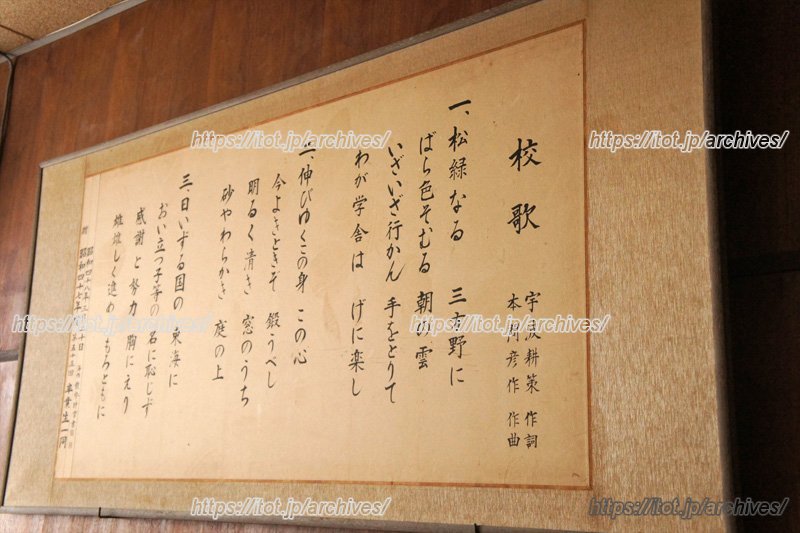 校歌
宇 耕策 作詞
本 彦作 作曲
一、松緑なる 三方野に
ばら色そむる 朝の雲
いざいざ行かん 手をとりて
わが学舎は げに楽し
二、伸びゆくこの身 この心
今よきときぞ 鍛うべし
明るく清き 窓のうち
砂やわらかき 庭の上
三、日いずる国の 東海に
おい立つ子等の 名に恥じず
感謝と努力 胸にえり
雄雄しく進め もろともに
昭和四十八年 十日
昭和四十七年 卒業生一同
https://itot.jp/archives/
https://itot.jp/archives/
https://itot.jp/archives/
https://itot.jp/archives/
https://itot.jp/archives/
https://itot.jp/archives/